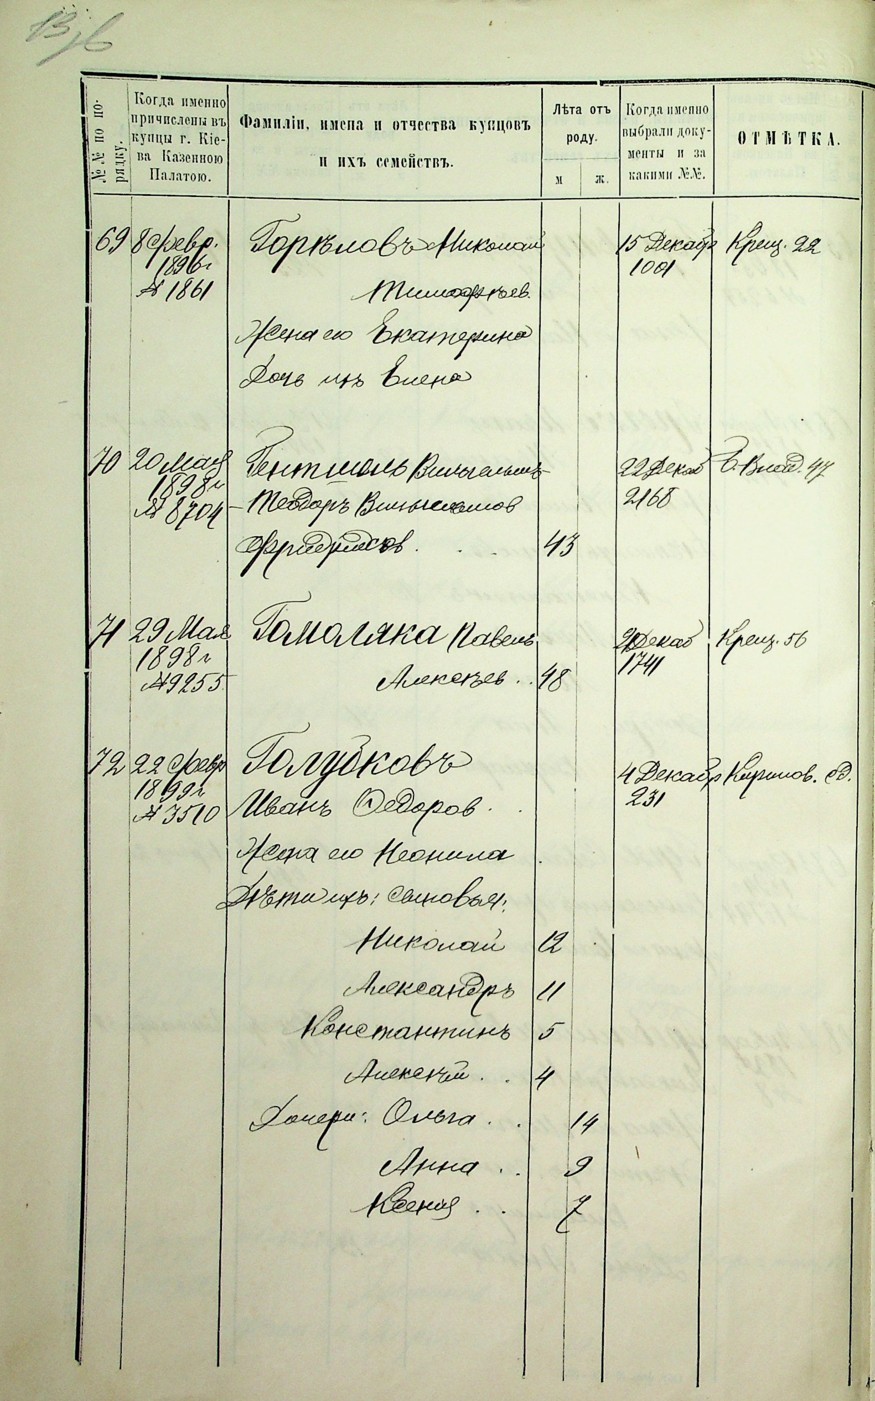 №№ по порядку.
Когда именно
причислены въ
купцы г. Кіе-
ва Казенною
Палатою.
Фамиліи, имена и отчества купцовъ
и ихъ семействъ.
Лѣта отъ
роду.
м
ж.
Когда именно
выбрали доку-
менты и за
какими №№.
ОТМѢТКА.
69 8 Февр. Горѣловъ Николай 15 Декабр Крещ. 22
1896 г 1001
№ 1861 Тимофѣев.
Жена его Екатерина
Дочь ихъ Елена
70 20 Мая Гентшель Вильгельмъ 22 Декаб Б. Влад. 47
1898 г 2168
№ 8704 – Теодоръ Вильгельмов
Фридрихов . . . 43
71 29 Мая Гомоляка Павелъ 20 Декаб Крещ. 56
1898 г 1741
№ 9255 Алексѣев . . 48
72 22 Февр Голубковъ 4 Декабр Кирилов. сд.
1899 г 231
№ 3510 Иванъ Ѳедоров . .
Жена его Неонила
Дѣти ихъ: сыновья:
Николай 12
Александръ 11
Константинъ 5
Алексѣй . . 4
Дочери: Ольга . . 14
Анна . . 9
Ксенія . . 7